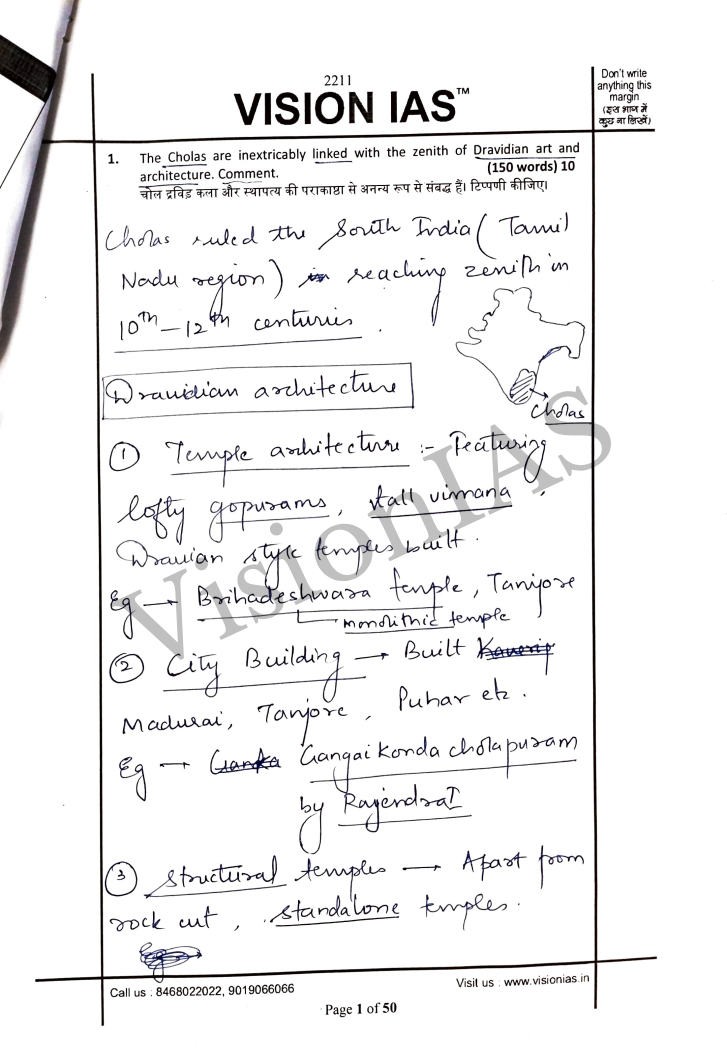 2211
VISION IAS™
Don't write
anything this
margin
(इस भाग में
कुछ ना लिखें)
1. The Cholas are inextricably linked with the zenith of Dravidian art and
architecture. Comment. (150 words) 10
चोल द्रविड़ कला और स्थापत्य की पराकाष्ठा से अनन्य रूप से संबद्ध हैं। टिप्पणी कीजिए।
Cholas ruled the South India ( Tamil
Nadu region) in reaching zenith in
10th - 12th centuries .
Cholas
Dravidian architecture
① Temple architecture :- Featuring
lofty gopurams, tall vimana ,
Dravian style temples built .
Eg → Brihadeshwara temple, Tanjore
monolithic temple
② City Building → Built Kaverip
Madurai, Tanjore, Puhar etc .
Eg → Ganka Gangaikonda cholapuram
by Rajendra I
③ Structural temples → Apart from
rock cut , standalone temples .
Eg →
VisionIAS
Call us : 8468022022, 9019066066
Visit us : www.visionias.in
Page 1 of 50